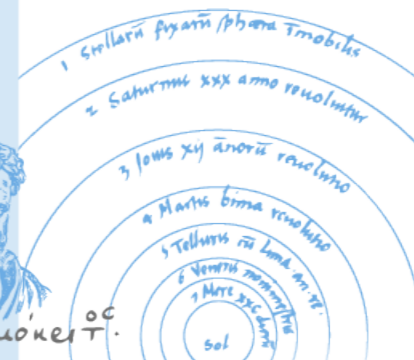 1 Stellarū fixarū sphæra īmobilis
2 Saturnus xxx anno reuoluitur
3 Iouis xij annorū reuolutio
4 Martis bima reuolutio
5 Telluris cū luna an. re.
6 Veneris nonimestris
7 Merc xxc dierū
Sol